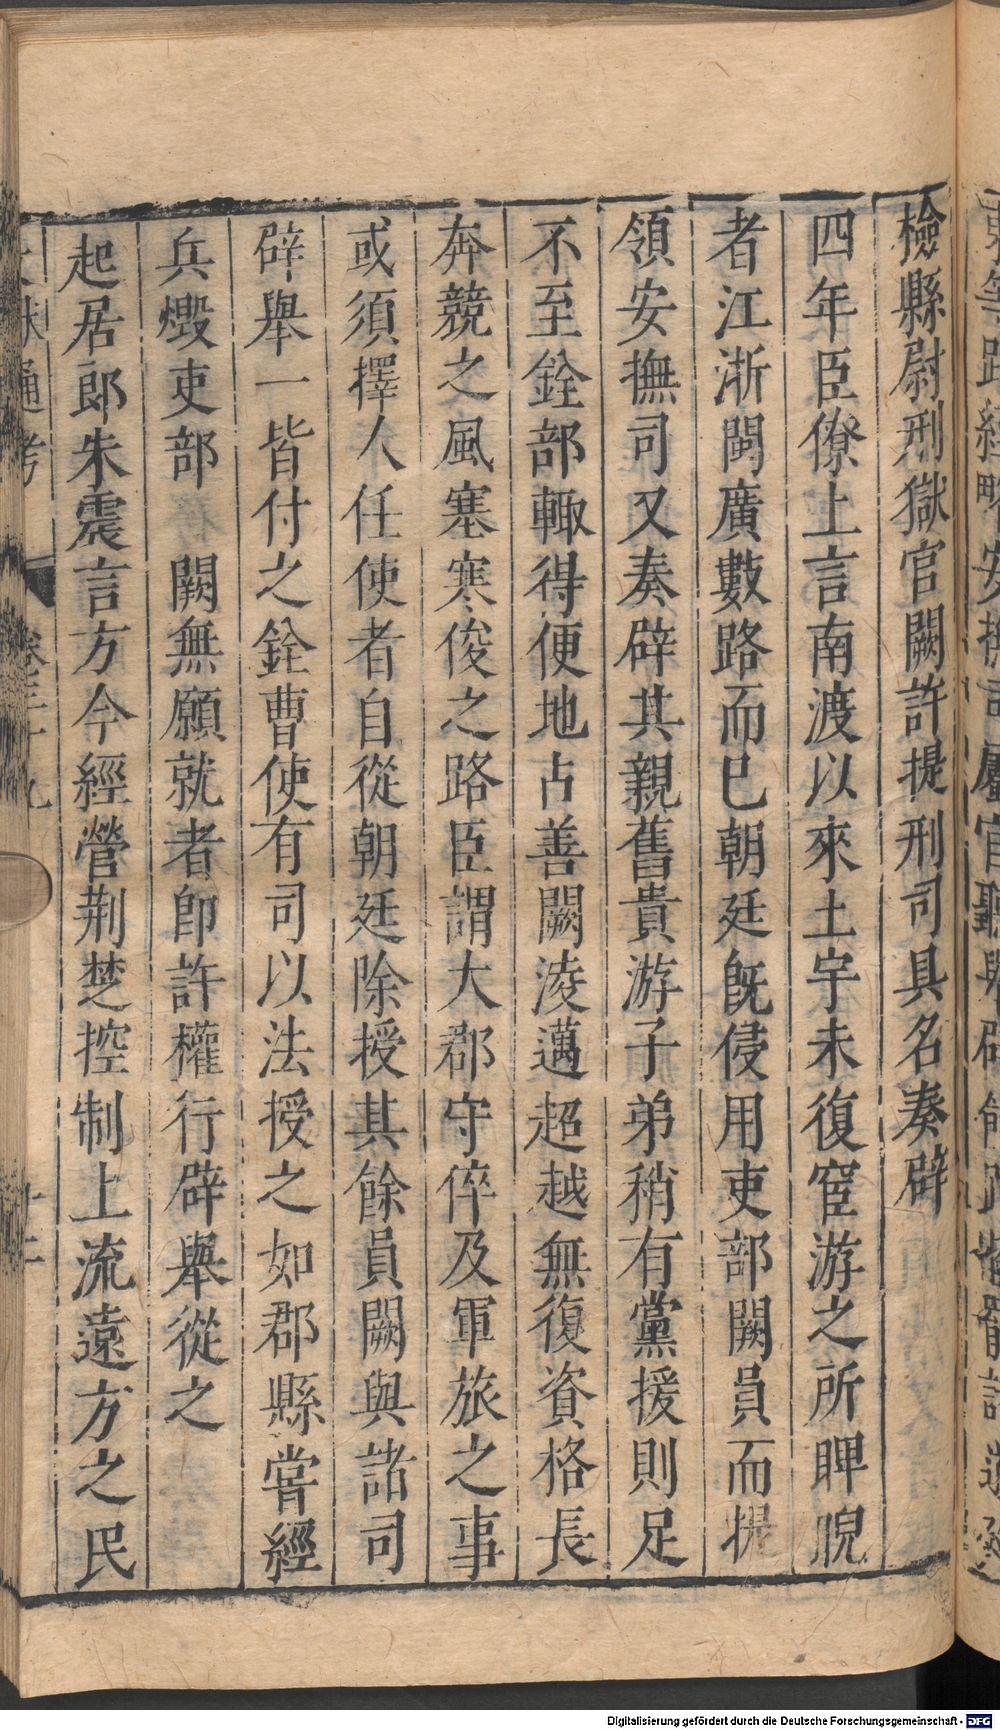 檢縣尉刑獄官闕許提刑司具名奏辟
四年臣僚上言南渡以來土宇未復宦游之所睥睨
者江浙閩廣數路而已朝廷旣侵用吏部闕員而提
領安撫司又奏辟其親舊貴游子弟稍有黨援則足
不至銓部輙得便地占善闕淩邁超越無復資格長
奔競之風塞寒俊之路臣謂大郡守倅及軍旅之事
或須擇人任使者自從朝廷除授其餘員闕與諸司
辟舉一皆付之銓曹使有司以法授之如郡縣嘗經
兵燬吏部 闕無願就者卽許權行辟舉從之
起居郎朱震言方今經營荆楚控制上流遠方之民
通考 卷三十九 十二
Digitalisierung gefördert durch die Deutsche Forschungsgemeinschaft - DFG